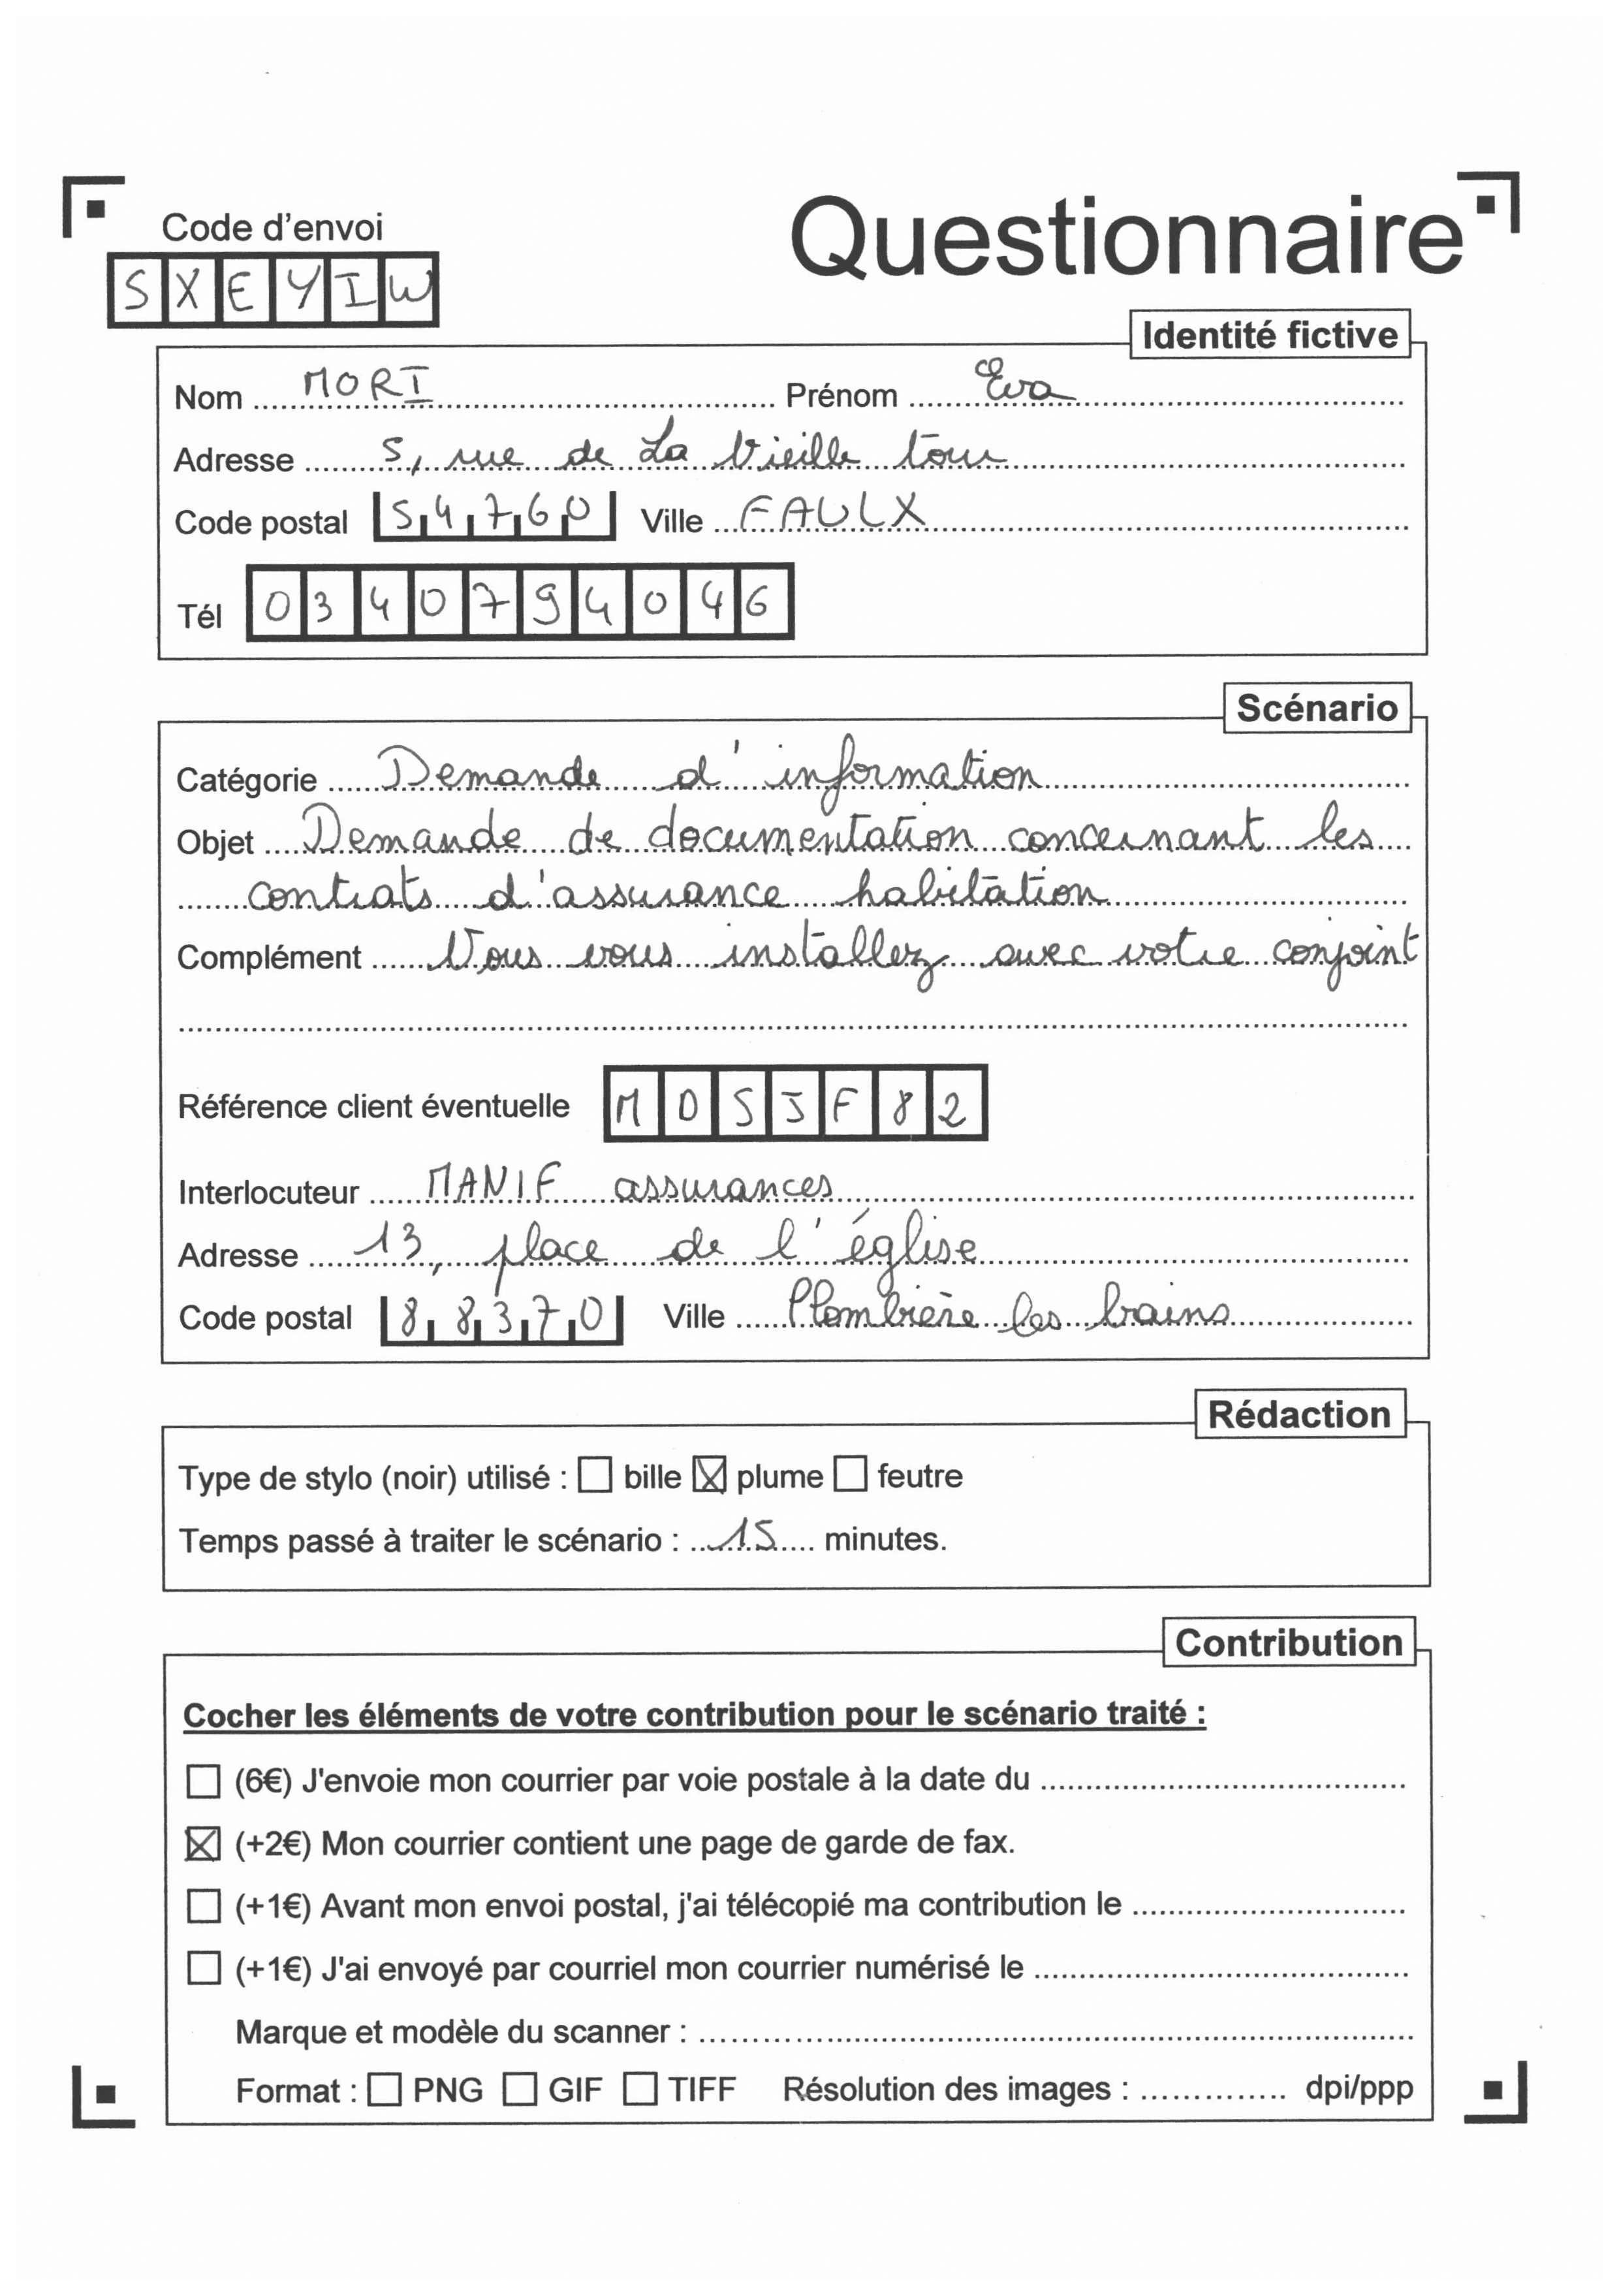 Code d'envoi
Questionnaire
SXEYIW
Identité fictive
Nom MORI Prénom Eva
Adresse 5, rue de La Vieille tour
Code postal 54760 Ville FAULX
Tél 0340794046
Scénario
Catégorie Demande d'information
Objet Demande de documentation concernant les
contrats d'assurance habitation
Complément Vous vous installez avec votre conjoint
Référence client éventuelle MDSJF82
Interlocuteur MANIF assurances
Adresse 13, place de l'église
Code postal 88370 Ville Plombière les bains
Rédaction
Type de stylo (noir) utilisé : ☐ bille ☒ plume ☐ feutre
Temps passé à traiter le scénario : 15 minutes.
Contribution
Cocher les éléments de votre contribution pour le scénario traité :
☐ (6€) J'envoie mon courrier par voie postale à la date du
☒ (+2€) Mon courrier contient une page de garde de fax.
☐ (+1€) Avant mon envoi postal, j'ai télécopié ma contribution le
☐ (+1€) J'ai envoyé par courriel mon courrier numérisé le
Marque et modèle du scanner :
Format : ☐ PNG ☐ GIF ☐ TIFF Résolution des images : dpi/ppp